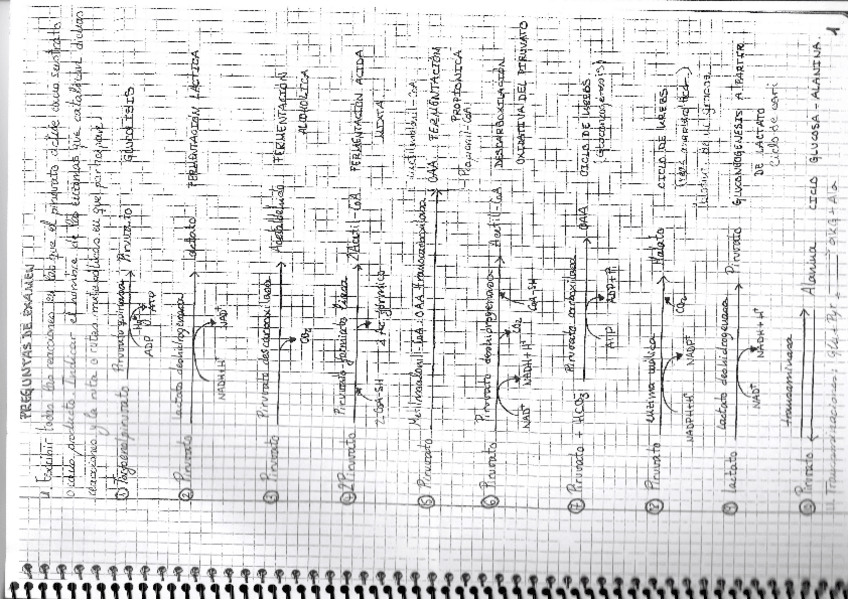 PREGUNTAS DE EXAMEN
1. Escribir todas las reacciones en las que el piruvato actúe como sustrato
o como producto. Indicar el nombre de las enzimas que catalizan dichas
reacciones y la ruta o rutas metabólicas en que participan.
① Fosfoenolpiruvato Piruvato quinasa Piruvato GLUCOLISIS
ADP Mg²⁺ ATP
② Piruvato Lactato deshidrogenasa Lactato FERMENTACIÓN LÁCTICA
NADH+H⁺ NAD⁺
③ Piruvato Piruvato descarboxilasa Acetaldehido FERMENTACIÓN
CO₂ ALCOHOLICA
④ 2 Piruvato Piruvato-formiato liasa 2 Acetil-CoA FERMENTACIÓN ACIDA
2 CoA-SH 2 Ac. fórmico MIXTA
⑤ Piruvato Metilmalonil-CoA: OAA transcarboxilasa OAA FERMENTACIÓN
Metilmalonil-CoA Propionil-CoA PROPIONICA
⑥ Piruvato Piruvato deshidrogenasa Acetil-CoA DESCARBOXILACIÓN
NAD⁺ NADH+H⁺ CO₂ CoA-SH OXIDATIVA DEL PIRUVATO
⑦ Piruvato + HCO₃⁻ Piruvato carboxilasa OAA CICLO DE KREBS
ATP ADP+Pi (gluconeogenesis)
⑧ Piruvato enzima málica Malato CICLO DE KREBS
NADPH+H⁺ NADP⁺ CO₂
⑨ Lactato Lactato deshidrogenasa Piruvato GLUCONEOGENESIS A PARTIR
NAD⁺ NADH+H⁺ DE LACTATO
Ciclo de cori
⑩ Piruvato transaminasa Alanina CICLO GLUCOSA-ALANINA.
αKG + Ala
1